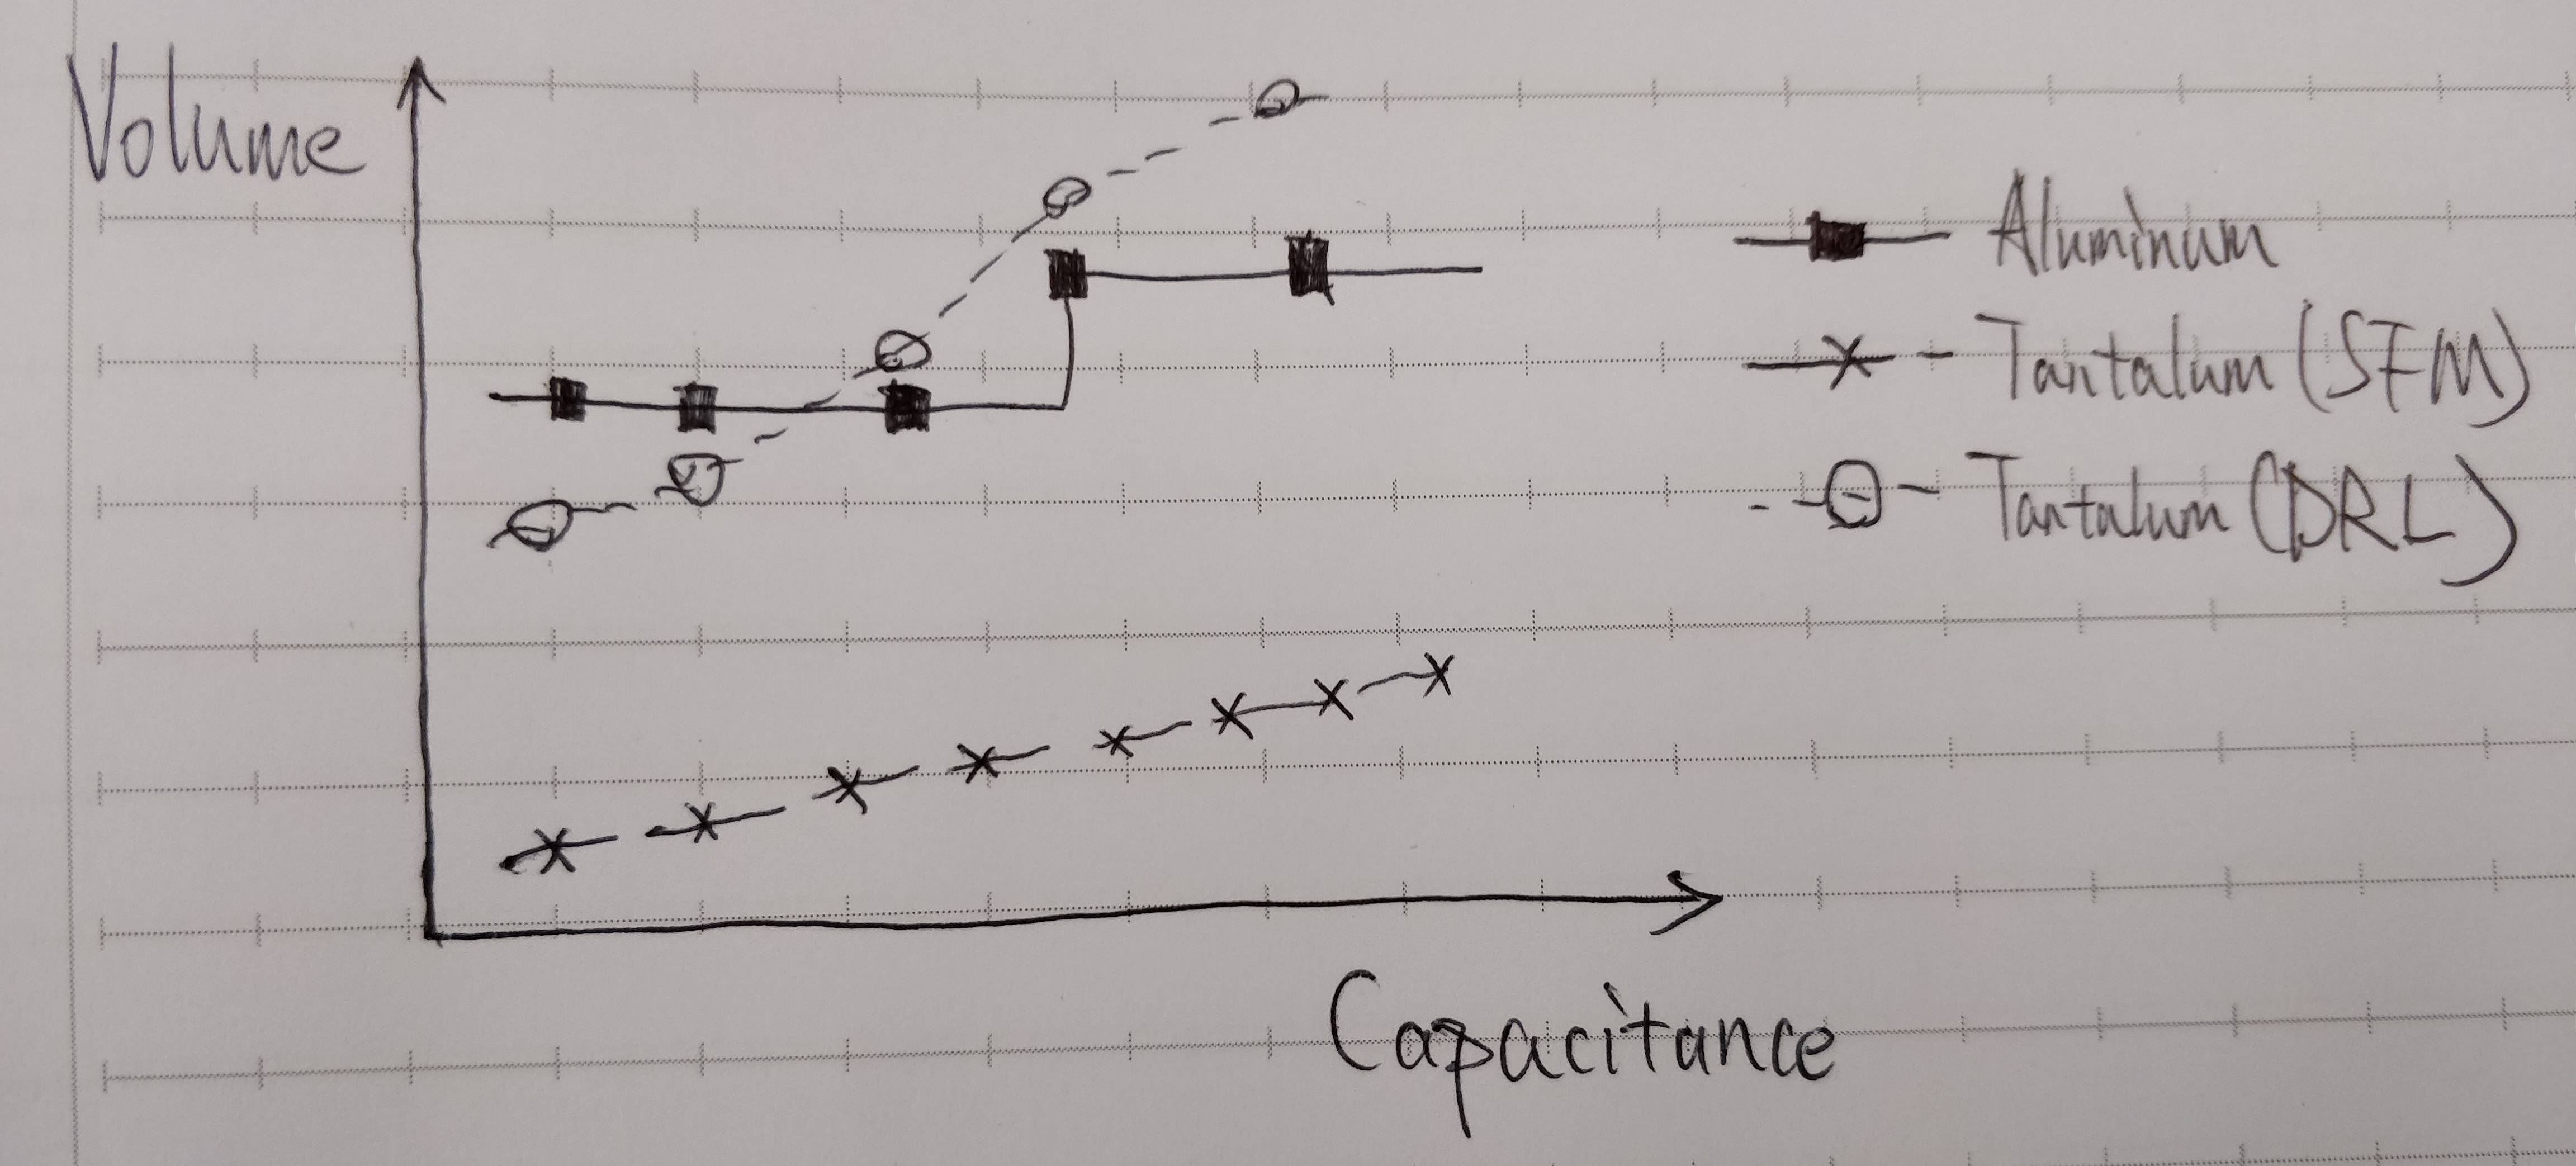 Volume
Aluminum
Tantalum (SFM)
Tantalum (DRL)
Capacitance